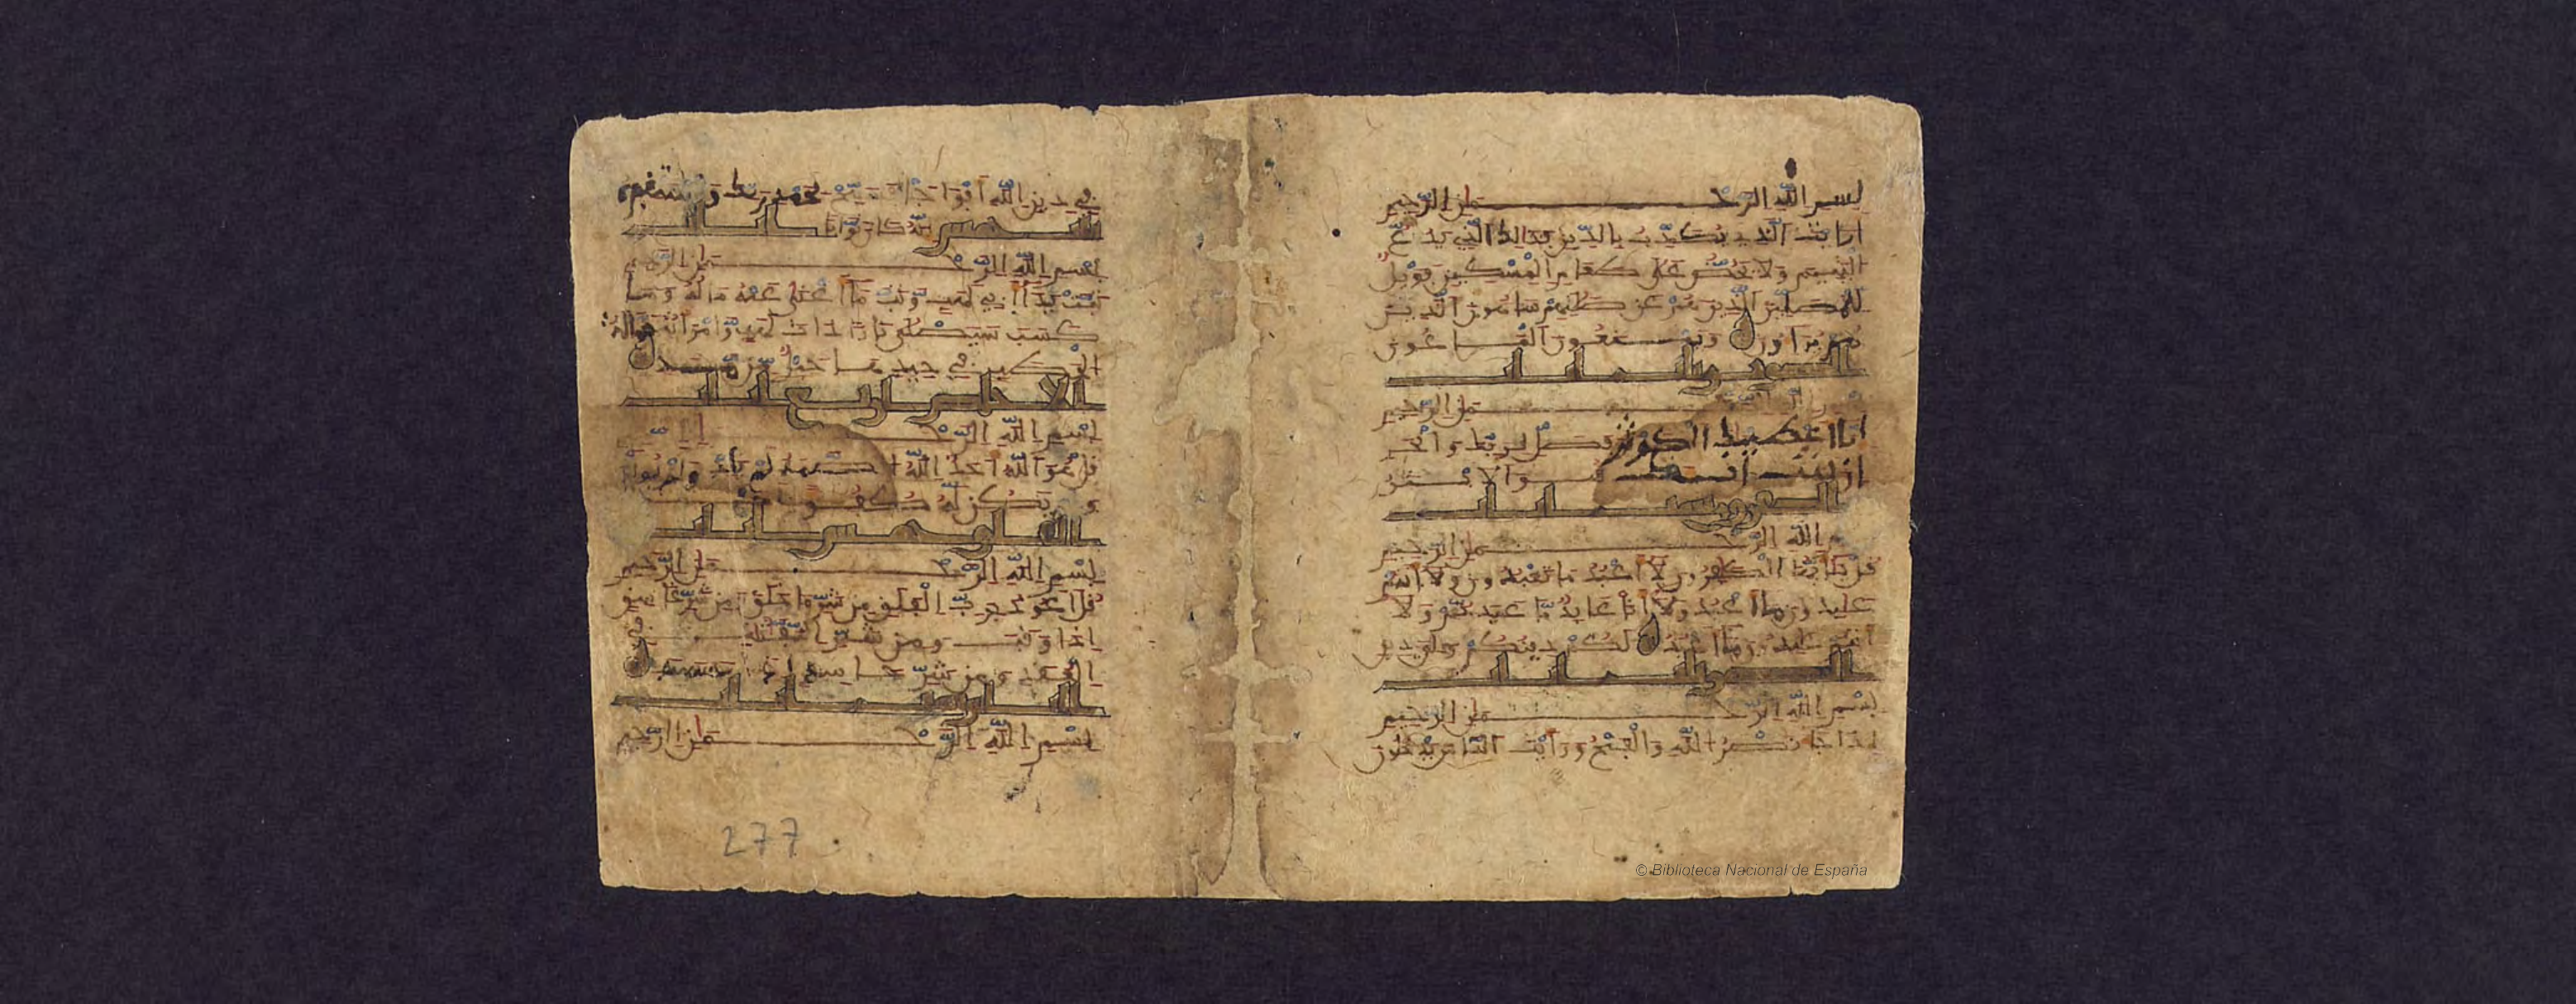 بسم الله الرحمن الرحيم
ارايت الذي يكذب بالدين فذالك الذي يدع
اليتيم ولا يحض على طعام المسكين فويل
للمصلين الذين هم عن صلاتهم ساهون الذين
هم يراءون ويمنعون الماعون
الكوثر ثلث ايات
الرحمن الرحيم
انا اعطينك الكوثر فصل لربك وانحر
ان شانئك هو الابتر
ست ايات
الله الرحمن الرحيم
قل يايها الكفرون لا اعبد ما تعبدون ولا انتم
عبدون ما اعبد ولا انا عابد ما عبدتم ولا
انتم عبدون ما اعبد لكم دينكم ولي دين
ايات
بسم الله الرحمن الرحيم
اذا جا نصر الله والفتح ورايت الناس يدخلون
في دين الله افواجا فسبح بحمد ربك واستغفره
انه كان توابا
خمس ايات
بسم الله الرحمن الرحيم
تبت يدا ابي لهب وتب ما اغنى عنه ماله وما
كسب سيصلى نارا ذات لهب وامراته حمالة
الحطب في جيدها حبل من مسد
الاخلاص اربع ايات
بسم الله الرحمن
قل هو الله احد الله الصمد لم يلد ولم يولد
ولم يكن له كفوا احد
الفلق خمس ايات
بسم الله الرحمن الرحيم
قل اعوذ برب الفلق من شر ما خلق ومن شر غاسق
اذا وقب ومن شر النفثت في
العقد ومن شر حاسد اذا حسد
الناس ست ايات
بسم الله الرحمن الرحيم
277
© Biblioteca Nacional de España